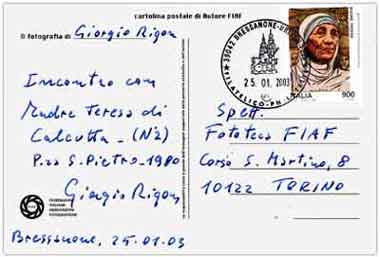 cartolina postale di Autore FIAF
© fotografia di Giorgio Rigon
Incontro con
Madre Teresa di
Calcutta - (N°2)
P.za S. Pietro - 1980
Giorgio Rigon
Bressanone, 25.01.03
39042 BRESSANONE
25.01.2003
ITALIA 900
Spett.
Fototeca FIAF
Corso S. Martino, 8
10122 TORINO
FEDERAZIONE
ITALIANA
ASSOCIAZIONI
FOTOGRAFICHE